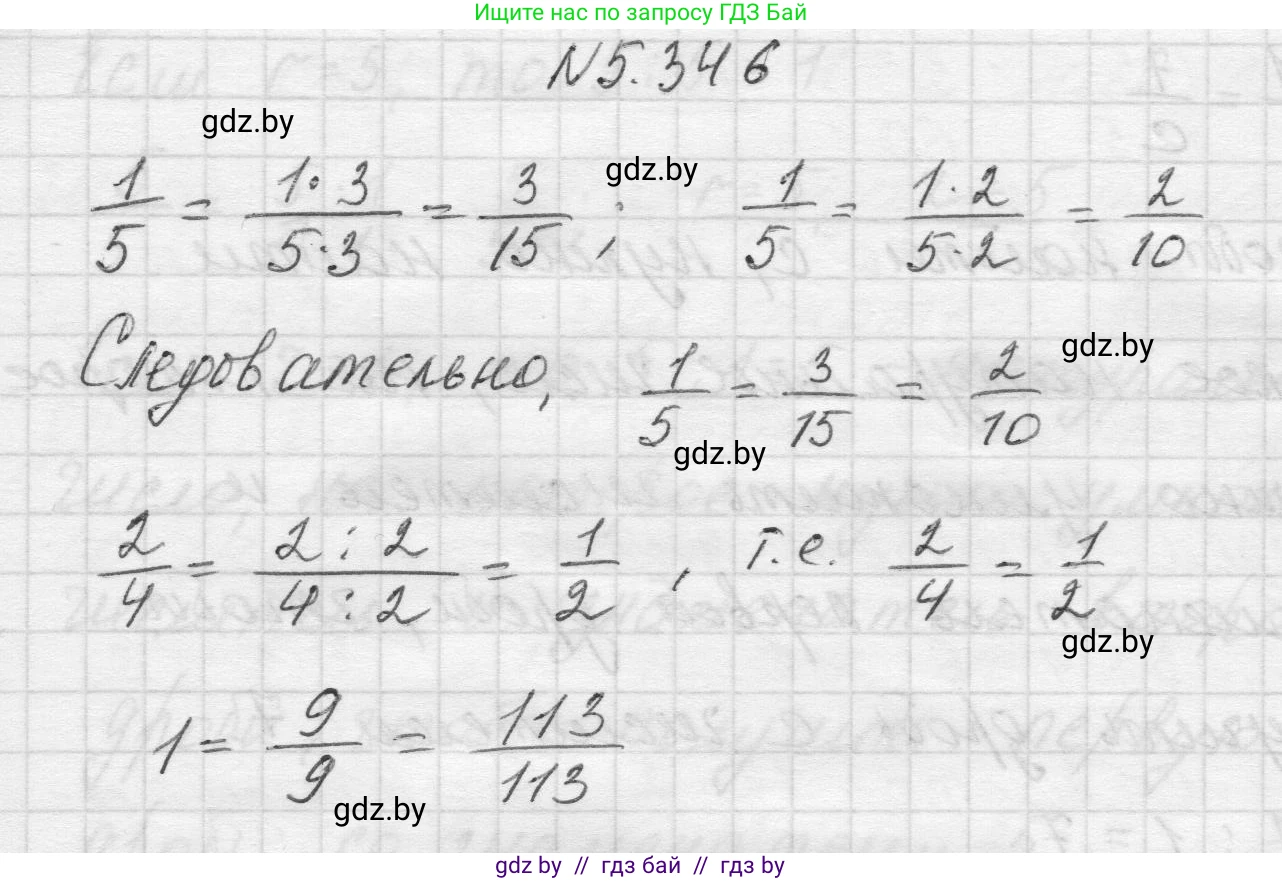 Ищите нас по запросу ГДЗ Бай
N 5.346
gdz.by
gdz.by
1/5 = 1·3/5·3 = 3/15 ; 1/5 = 1·2/5·2 = 2/10
gdz.by
Следовательно, 1/5 = 3/15 = 2/10
gdz.by
2/4 = 2:2/4:2 = 1/2 , т.е. 2/4 = 1/2
gdz.by
1 = 9/9 = 113/113
gdz.by
gdz.by // гдз бай // гдз by